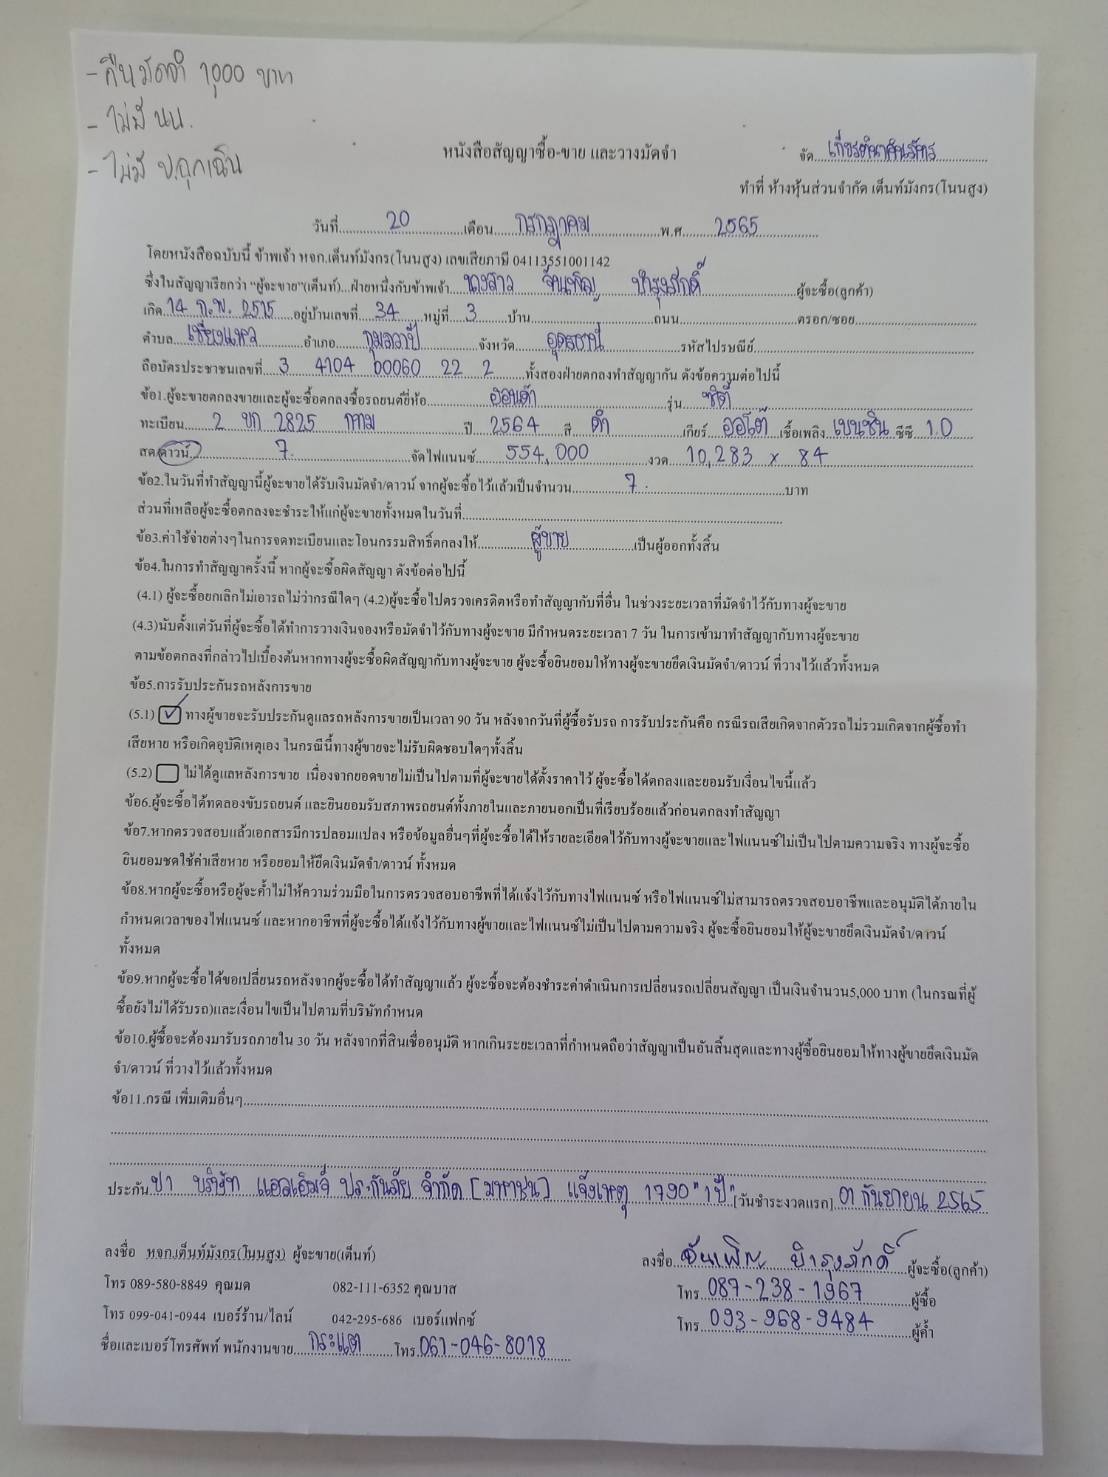 - คืนมัดจำ 1,000 บาท
- ไม่มี นน.
- ไม่มี บ.ฉุกเฉิน
หนังสือสัญญาซื้อ-ขาย และวางมัดจำ
จัด เกียรตินาคินภัทร
ทำที่ ห้างหุ้นส่วนจำกัด เต็นท์มังกร(โนนสูง)
วันที่ 20 เดือน กรกฎาคม พ.ศ. 2565
โดยหนังสือฉบับนี้ ข้าพเจ้า หจก.เต็นท์มังกร(โนนสูง) เลขเสียภาษี 04113551001142
ซึ่งในสัญญาเรียกว่า "ผู้จะขาย"(เต็นท์)...ฝ่ายหนึ่งกับข้าพเจ้า นางสาว จันเพ็ญ บำรุงภักดิ์ ผู้จะซื้อ(ลูกค้า)
เกิด 14 ก.พ. 2515 อยู่บ้านเลขที่ 34 หมู่ที่ 3 บ้าน ถนน ตรอก/ซอย
ตำบล เชียงแหว อำเภอ กุมภวาปี จังหวัด อุดรธานี รหัสไปรษณีย์
ถือบัตรประชาชนเลขที่ 3 4104 00060 22 2 ทั้งสองฝ่ายตกลงทำสัญญากัน ดังข้อความต่อไปนี้
ข้อ1.ผู้จะขายตกลงขายและผู้จะซื้อตกลงซื้อรถยนต์ยี่ห้อ ฮอนด้า รุ่น ซิตี้
ทะเบียน 2 ขก 2825 กทม ปี 2564 สี ดำ เกียร์ ออโต้ เชื้อเพลิง เบนซิน ซีซี 1.0
สด/ดาวน์ 7. จัดไฟแนนซ์ 554,000 งวด 10,283 x 84
ข้อ2.ในวันที่ทำสัญญานี้ผู้จะขายได้รับเงินมัดจำ/ดาวน์ จากผู้จะซื้อไว้แล้วเป็นจำนวน 7. บาท
ส่วนที่เหลือผู้จะซื้อตกลงจะชำระให้แก่ผู้จะขายทั้งหมดในวันที่
ข้อ3.ค่าใช้จ่ายต่างๆในการจดทะเบียนและโอนกรรมสิทธิ์ตกลงให้ ผู้ขาย เป็นผู้ออกทั้งสิ้น
ข้อ4.ในการทำสัญญาครั้งนี้ หากผู้จะซื้อผิดสัญญา ดังข้อต่อไปนี้
(4.1) ผู้จะซื้อยกเลิกไม่เอารถไม่ว่ากรณีใดๆ (4.2)ผู้จะซื้อไปตรวจเครดิตหรือทำสัญญากับที่อื่น ในช่วงระยะเวลาที่มัดจำไว้กับทางผู้จะขาย
(4.3)นับตั้งแต่วันที่ผู้จะซื้อได้ทำการวางเงินจองหรือมัดจำไว้กับทางผู้จะขาย มีกำหนดระยะเวลา 7 วัน ในการเข้ามาทำสัญญากับทางผู้จะขาย
ตามข้อตกลงที่กล่าวไปเบื้องต้นหากทางผู้จะซื้อผิดสัญญากับทางผู้จะขาย ผู้จะซื้อยินยอมให้ทางผู้จะขายยึดเงินมัดจำ/ดาวน์ ที่วางไว้แล้วทั้งหมด
ข้อ5.การรับประกันรถหลังการขาย
(5.1) ✓ ทางผู้ขายจะรับประกันดูแลรถหลังการขายเป็นเวลา 90 วัน หลังจากวันที่ผู้ซื้อรับรถ การรับประกันคือ กรณีรถเสียเกิดจากตัวรถไม่รวมเกิดจากผู้ซื้อทำ
เสียหาย หรือเกิดอุบัติเหตุเอง ในกรณีนี้ทางผู้ขายจะไม่รับผิดชอบใดๆทั้งสิ้น
(5.2) ไม่ได้ดูแลหลังการขาย เนื่องจากยอดขายไม่เป็นไปตามที่ผู้จะขายได้ตั้งราคาไว้ ผู้จะซื้อได้ตกลงและยอมรับเงื่อนไขนี้แล้ว
ข้อ6.ผู้จะซื้อได้ทดลองขับรถยนต์ และยินยอมรับสภาพรถยนต์ทั้งภายในและภายนอกเป็นที่เรียบร้อยแล้วก่อนตกลงทำสัญญา
ข้อ7.หากตรวจสอบแล้วเอกสารมีการปลอมแปลง หรือข้อมูลอื่นๆที่ผู้จะซื้อได้ให้รายละเอียดไว้กับทางผู้จะขายและไฟแนนซ์ไม่เป็นไปตามความจริง ทางผู้จะซื้อ
ยินยอมชดใช้ค่าเสียหาย หรือยอมให้ยึดเงินมัดจำ/ดาวน์ ทั้งหมด
ข้อ8.หากผู้จะซื้อหรือผู้จะค้ำไม่ให้ความร่วมมือในการตรวจสอบอาชีพที่ได้แจ้งไว้กับทางไฟแนนซ์ หรือไฟแนนซ์ไม่สามารถตรวจสอบอาชีพและอนุมัติได้ภายใน
กำหนดเวลาของไฟแนนซ์ และหากอาชีพที่ผู้จะซื้อได้แจ้งไว้กับทางผู้ขายและไฟแนนซ์ไม่เป็นไปตามความจริง ผู้จะซื้อยินยอมให้ผู้จะขายยึดเงินมัดจำ/ดาวน์
ทั้งหมด
ข้อ9.หากผู้จะซื้อได้ขอเปลี่ยนรถหลังจากผู้จะซื้อได้ทำสัญญาแล้ว ผู้จะซื้อจะต้องชำระค่าดำเนินการเปลี่ยนรถเปลี่ยนสัญญา เป็นเงินจำนวน5,000 บาท (ในกรณที่ผู้
ซื้อยังไม่ได้รับรถ)และเงื่อนไขเป็นไปตามที่บริษัทกำหนด
ข้อ10.ผู้ซื้อจะต้องมารับรถภายใน 30 วัน หลังจากที่สินเชื่ออนุมัติ หากเกินระยะเวลาที่กำหนดถือว่าสัญญาเป็นอันสิ้นสุดและทางผู้ซื้อยินยอมให้ทางผู้ขายยึดเงินมัด
จำ/ดาวน์ ที่วางไว้แล้วทั้งหมด
ข้อ11.กรณี เพิ่มเติมอื่นๆ
ประกัน ป1 บริษัท แอลเอ็มจี ประกันภัย จำกัด [มหาชน] แจ้งเหตุ 1790 "1ปี" [วันชำระงวดแรก] 01 กันยายน 2565
ลงชื่อ หจก.เต็นท์มังกร(โนนสูง) ผู้จะขาย(เต็นท์)
ลงชื่อ จันเพ็ญ บำรุงภักดิ์ ผู้จะซื้อ(ลูกค้า)
โทร 089-580-8849 คุณมด 082-111-6352 คุณบาส
โทร. 087-238-1967 ผู้ซื้อ
โทร 099-041-0944 เบอร์ร้าน/ไลน์ 042-295-686 เบอร์แฟกซ์
โทร. 093-968-9484 ผู้ค้ำ
ชื่อและเบอร์โทรศัพท์ พนักงานขาย กระแต โทร. 061-046-8018